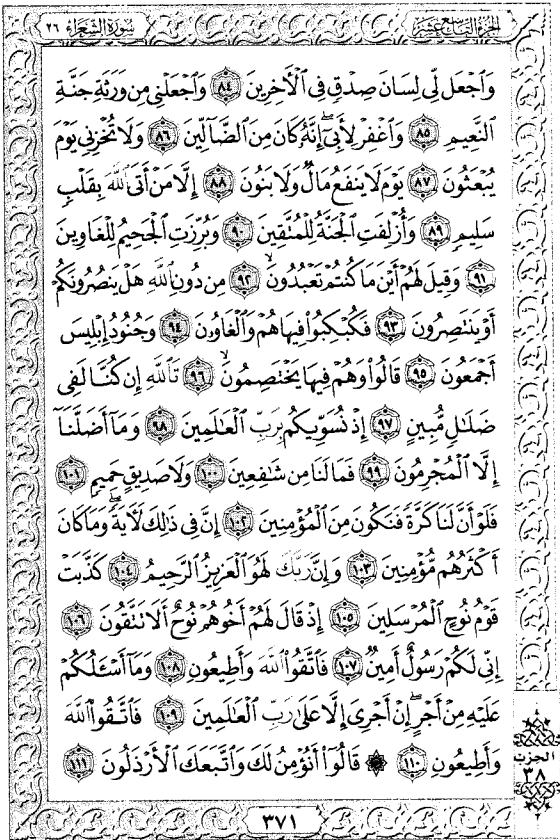 الجزء التاسع عشر
سورة الشعراء ٢٦
وَٱجۡعَل لِّي لِسَانَ صِدۡقٖ فِي ٱلۡأٓخِرِينَ ٨٤ وَٱجۡعَلۡنِي مِن وَرَثَةِ جَنَّةِ
ٱلنَّعِيمِ ٨٥ وَٱغۡفِرۡ لِأَبِيٓ إِنَّهُۥ كَانَ مِنَ ٱلضَّآلِّينَ ٨٦ وَلَا تُخۡزِنِي يَوۡمَ
يُبۡعَثُونَ ٨٧ يَوۡمَ لَا يَنفَعُ مَالٞ وَلَا بَنُونَ ٨٨ إِلَّا مَنۡ أَتَى ٱللَّهَ بِقَلۡبٖ
سَلِيمٖ ٨٩ وَأُزۡلِفَتِ ٱلۡجَنَّةُ لِلۡمُتَّقِينَ ٩٠ وَبُرِّزَتِ ٱلۡجَحِيمُ لِلۡغَاوِينَ
٩١ وَقِيلَ لَهُمۡ أَيۡنَ مَا كُنتُمۡ تَعۡبُدُونَ ٩٢ مِن دُونِ ٱللَّهِ هَلۡ يَنصُرُونَكُمۡ
أَوۡ يَنتَصِرُونَ ٩٣ فَكُبۡكِبُواْ فِيهَا هُمۡ وَٱلۡغَاوُۥنَ ٩٤ وَجُنُودُ إِبۡلِيسَ
أَجۡمَعُونَ ٩٥ قَالُواْ وَهُمۡ فِيهَا يَخۡتَصِمُونَ ٩٦ تَٱللَّهِ إِن كُنَّا لَفِي
ضَلَٰلٖ مُّبِينٍ ٩٧ إِذۡ نُسَوِّيكُم بِرَبِّ ٱلۡعَٰلَمِينَ ٩٨ وَمَآ أَضَلَّنَآ
إِلَّا ٱلۡمُجۡرِمُونَ ٩٩ فَمَا لَنَا مِن شَٰفِعِينَ ١٠٠ وَلَا صَدِيقٍ حَمِيمٖ ١٠١
فَلَوۡ أَنَّ لَنَا كَرَّةٗ فَنَكُونَ مِنَ ٱلۡمُؤۡمِنِينَ ١٠٢ إِنَّ فِي ذَٰلِكَ لَأٓيَةٗۖ وَمَا كَانَ
أَكۡثَرُهُم مُّؤۡمِنِينَ ١٠٣ وَإِنَّ رَبَّكَ لَهُوَ ٱلۡعَزِيزُ ٱلرَّحِيمُ ١٠٤ كَذَّبَتۡ
قَوۡمُ نُوحٍ ٱلۡمُرۡسَلِينَ ١٠٥ إِذۡ قَالَ لَهُمۡ أَخُوهُمۡ نُوحٌ أَلَا تَتَّقُونَ ١٠٦
إِنِّي لَكُمۡ رَسُولٌ أَمِينٞ ١٠٧ فَٱتَّقُواْ ٱللَّهَ وَأَطِيعُونِ ١٠٨ وَمَآ أَسۡـَٔلُكُمۡ
عَلَيۡهِ مِنۡ أَجۡرٍۖ إِنۡ أَجۡرِيَ إِلَّا عَلَىٰ رَبِّ ٱلۡعَٰلَمِينَ ١٠٩ فَٱتَّقُواْ ٱللَّهَ
وَأَطِيعُونِ ١١٠ ۞ قَالُوٓاْ أَنُؤۡمِنُ لَكَ وَٱتَّبَعَكَ ٱلۡأَرۡذَلُونَ ١١١
الحزب
٣٨
٣٧١